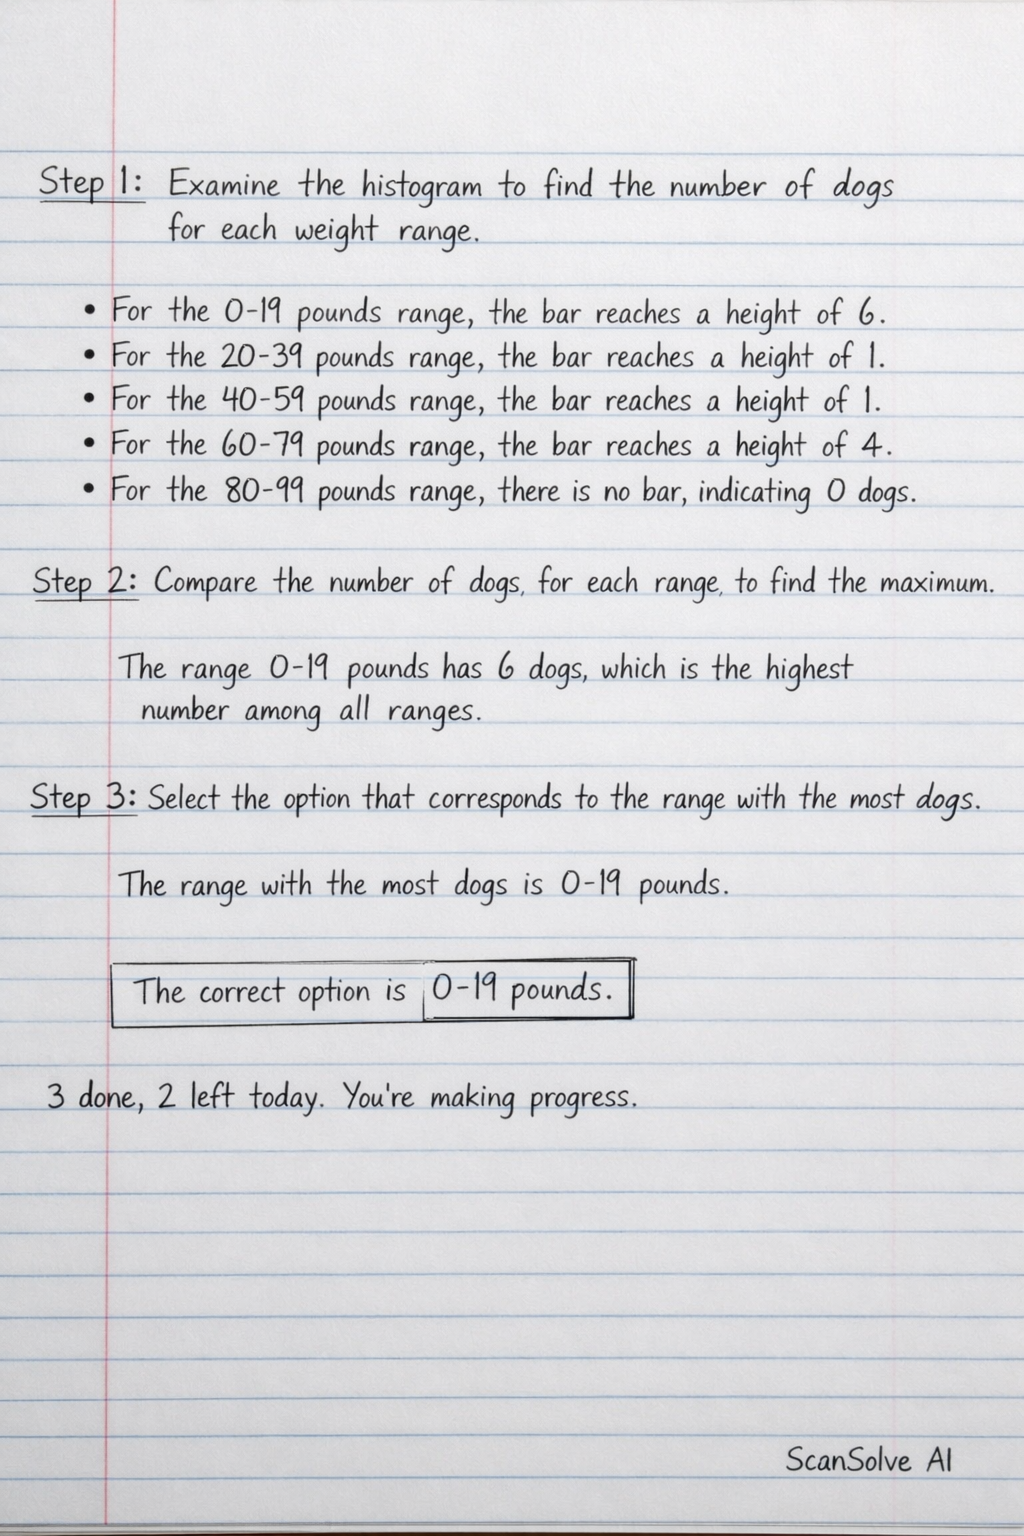 Step 1: Examine the histogram to find the number of dogs
for each weight range.
• For the 0-19 pounds range, the bar reaches a height of 6.
• For the 20-39 pounds range, the bar reaches a height of 1.
• For the 40-59 pounds range, the bar reaches a height of 1.
• For the 60-79 pounds range, the bar reaches a height of 4.
• For the 80-99 pounds range, there is no bar, indicating 0 dogs.
Step 2: Compare the number of dogs, for each range, to find the maximum.
The range 0-19 pounds has 6 dogs, which is the highest
number among all ranges.
Step 3: Select the option that corresponds to the range with the most dogs.
The range with the most dogs is 0-19 pounds.
The correct option is 0-19 pounds.
3 done, 2 left today. You're making progress.
ScanSolve AI